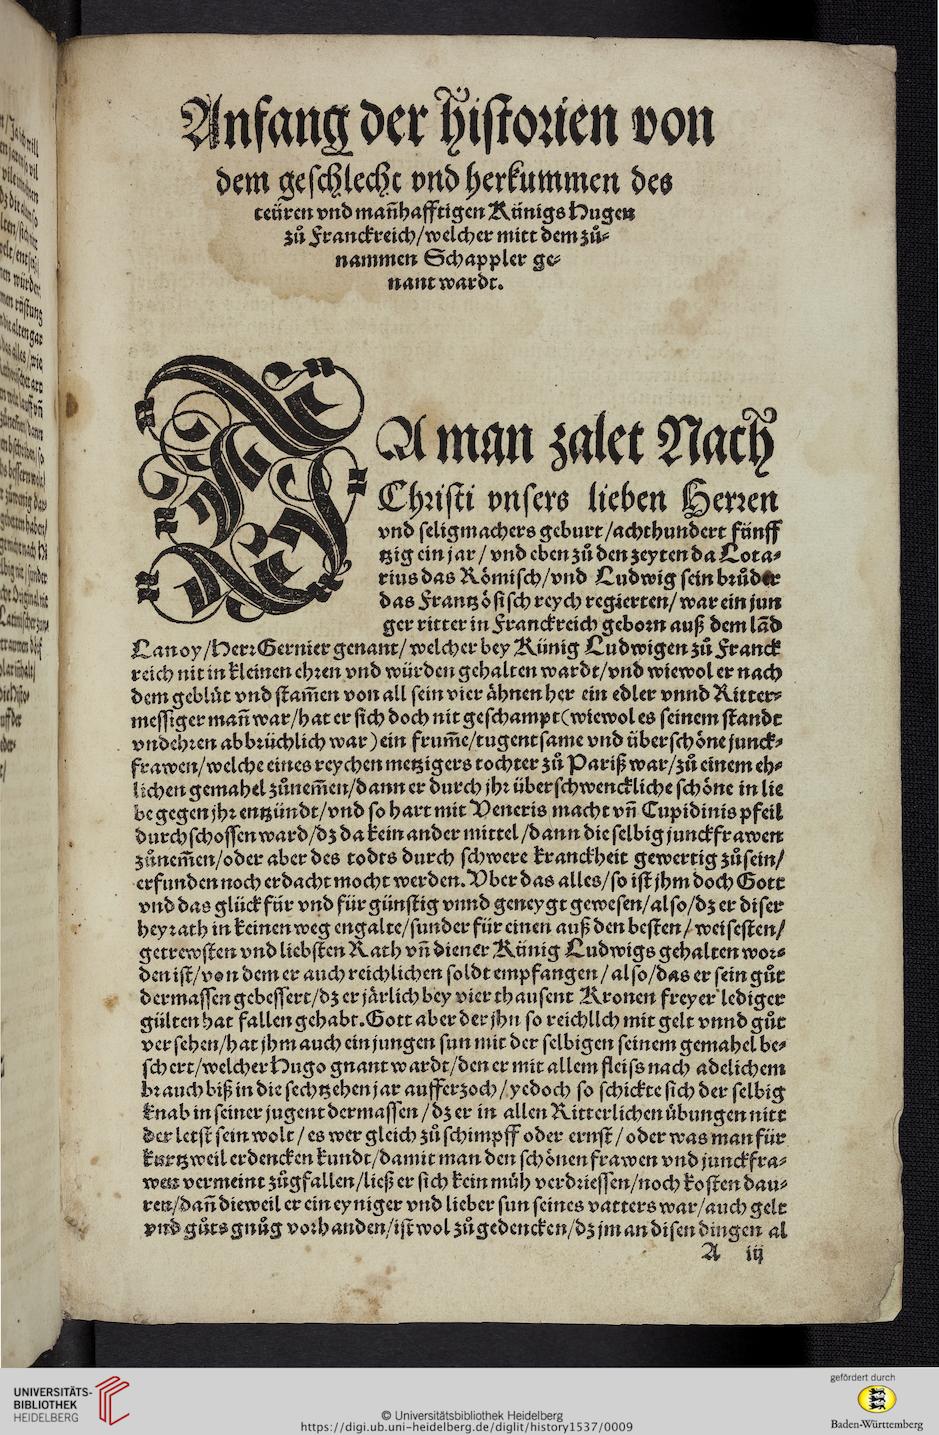 Anfang der historien von
dem geschlecht vnd herkummen des
teüren vnd mañhafftigen Künigs Hugen
zů Franckreich/welcher mitt dem zů-
nammen Schappler ge-
nant wardt.
DA man zalet Nach
Christi vnsers lieben Herren
vnd seligmachers geburt/achthundert fünff
tzig ein jar/ vnd eben zů den zeyten da Lota-
rius das Römisch/vnd Ludwig sein brůder
das Frantzösisch reych regierten/ war ein jun
ger ritter in Franckreich geborn auß dem lãd
Lanoy/Herr Gernier genant/ welcher bey Künig Ludwigen zů Franck
reich nit in kleinen ehren vnd würden gehalten wardt/vnd wiewol er nach
dem geblüt vnd stam̃en von all sein vier ähnen her ein edler vnnd Ritter-
messiger mañ war/hat er sich doch nit geschampt (wiewol es seinem standt
vnd ehren abbrüchlich war) ein frum̃e/tugentsame vnd überschöne junck-
frawen/welche eines reychen metzigers tochter zů Pariß war/zů einem eh-
lichen gemahel zůnem̃en/dann er durch jhr überschwenckliche schöne in lie
be gegen jhr entzündt/vnd so hart mit Veneris macht vñ Cupidinis pfeil
durchschossen ward/dz da kein ander mittel/dann die selbig junckfrawen
zůnem̃en/oder aber des todts durch schwere kranckheit gewertig zů sein/
erfunden noch erdacht mocht werden. Vber das alles/so ist jhm doch Gott
vnd das glück für vnd für günstig vnnd geneygt gewesen/also/dz er diser
heyrath in keinen weg engalte/sunder für einen auß den besten/ weisesten/
getrewsten vnd liebsten Rath vñ diener Künig Ludwigs gehalten wor-
den ist/von dem er auch reichlichen soldt empfangen/ also/das er sein gůt
dermassen gebessert/dz er järlich bey vier thausent Kronen freyer lediger
gülten hat fallen gehabt. Gott aber der jhn so reichllch mit gelt vnnd gůt
versehen/hat jhm auch ein jungen sun mit der selbigen seinem gemahel be-
schert/welcher Hugo gnant wardt/den er mit allem fleiss nach adelichem
brauch biß in die sechtzehen jar aufferzoch/ yedoch so schickte sich der selbig
knab in seiner jugent dermassen/dz er in allen Ritterlichen übungen nitt
der letst sein wolt/ es wer gleich zů schimpff oder ernst/ oder was man für
kurtzweil erdencken kundt/damit man den schönen frawen vnd junckfra-
wen vermeint zůgfallen/ließ er sich kein müh verdriessen/noch kosten dau-
ren/dañ dieweil er ein eyniger vnd lieber sun seines vatters war/auch gelt
vnd gůts gnůg vorhanden/ist wol zů gedencken/dz jm an disen dingen al
A iij
UNIVERSITÄTS-
BIBLIOTHEK
HEIDELBERG
© Universitätsbibliothek Heidelberg
https://digi.ub.uni-heidelberg.de/diglit/history1537/0009
gefördert durch
Baden-Württemberg